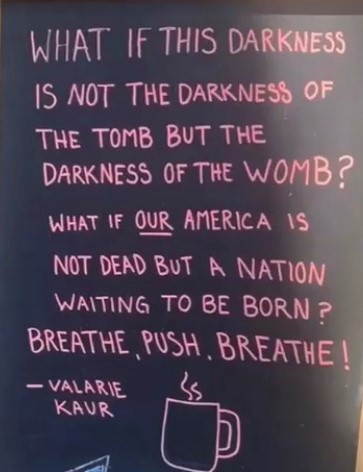 WHAT IF THIS DARKNESS
IS NOT THE DARKNESS OF
THE TOMB BUT THE
DARKNESS OF THE WOMB?
WHAT IF OUR AMERICA IS
NOT DEAD BUT A NATION
WAITING TO BE BORN?
BREATHE, PUSH. BREATHE!
— VALARIE
KAUR